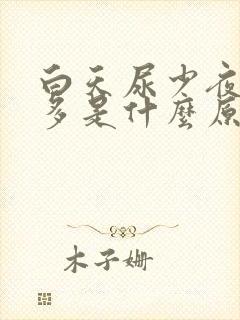 白天尿少夜
多是什麼原
木子姗